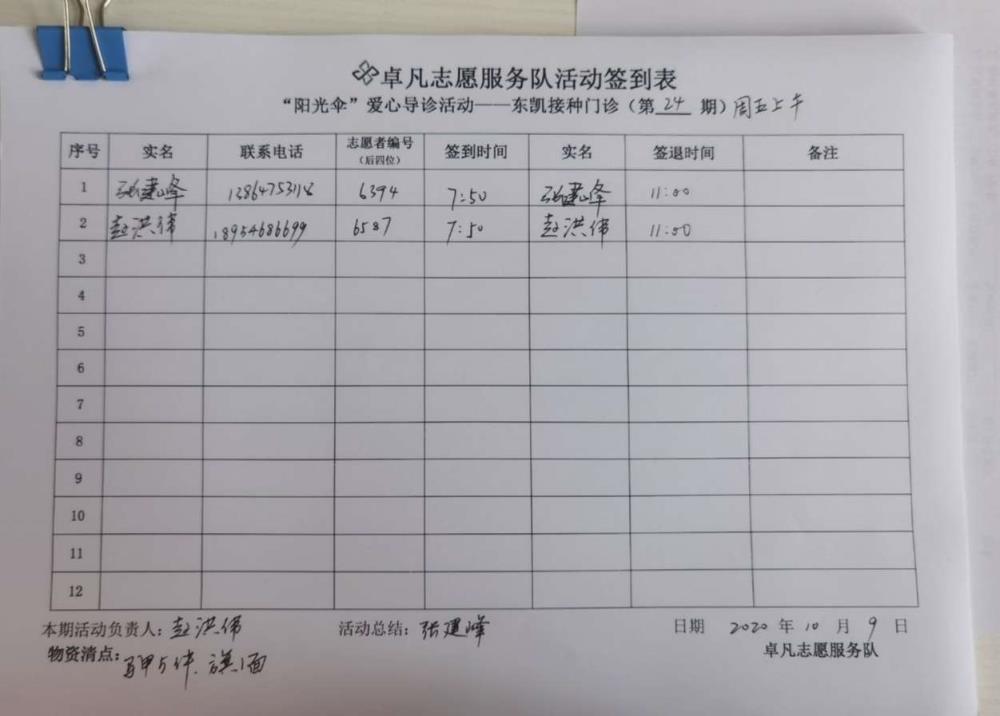 卓凡志愿服务队活动签到表
“阳光伞”爱心导诊活动——东凯接种门诊（第 24 期）周五上午
序号 实名 联系电话 志愿者编号（后四位） 签到时间 实名 签退时间 备注
1 张建峰 13864753114 6394 7:50 张建峰 11:00
2 赵洪伟 18954686699 6587 7:50 赵洪伟 11:00
3
4
5
6
7
8
9
10
11
12
本期活动负责人：赵洪伟 活动总结：张建峰 日期 2020 年 10 月 9 日
物资清点：马甲5件、旗1面 卓凡志愿服务队